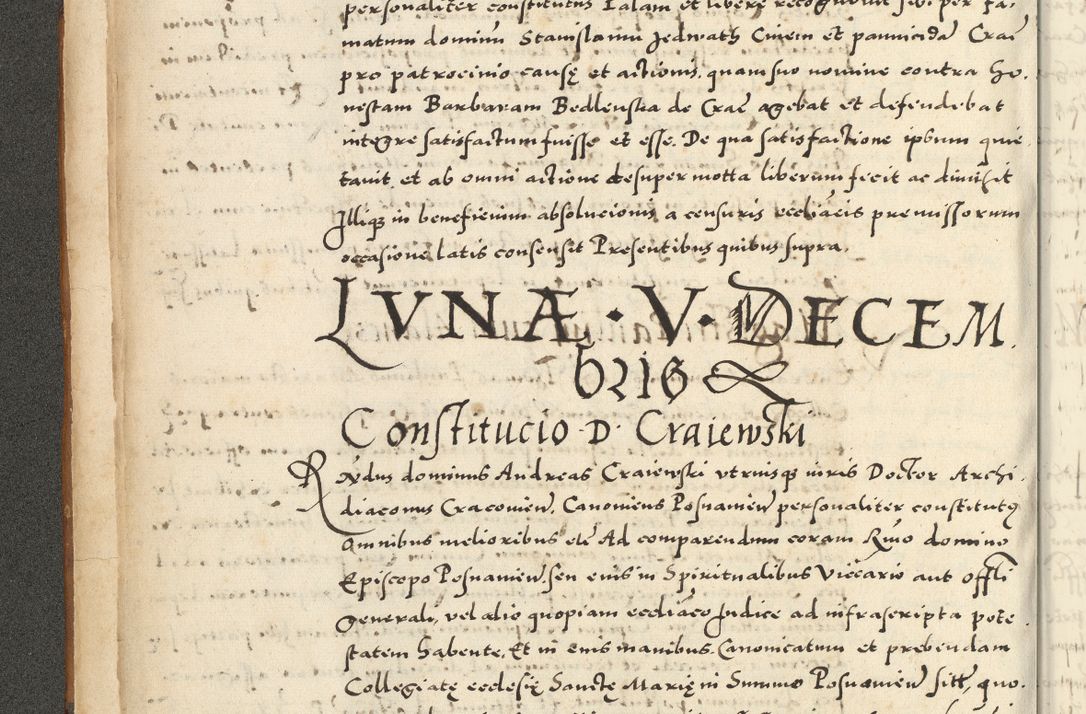 personaliter constitutus Palam et libere recognovit sibi per fa-
matum dominũ Stanislaum Jedwath Civem et pannicidã Craĉ
pro patrocinio causę et actionis, quam suo nomine contra Ho-
nestam Barbaram Bedlenska de Craĉ agebat et defendebat
integre satisfactum fuisse et esse. De qua satisfactione ipsum quie-
tavit, et ab omni actione desuper motta liberum fecit ac dimisit
Illiqꝫ in beneficium absolucionis a censuris eccliãcis premissorum
occasione latis consensit Presentibus quibus supra.
LVNÆ · V · DECEM
bris
Constitucio D. Craiewski
Rẽvdus dominus Andreas Craiewski utriusqꝫ iuris Doctor Archi-
diaconus Cracovieñ, Canonicus Posnanieñ personaliter constitutꝯ
Omnibus melioribus etĉ Ad comparendum coram Rm̃o domino
Episcopo Posnanieñ, seu eius in Spiritualibus Viccario aut offli
generali, vel alio quopiam eccliãco Judice ad infrascripta pote-
statem habente, Et in eius manibus Canonicatum et prebendam
Collegiatę ecclesię Sanctę Marię in Summo Posnanieñ sitt, quo-